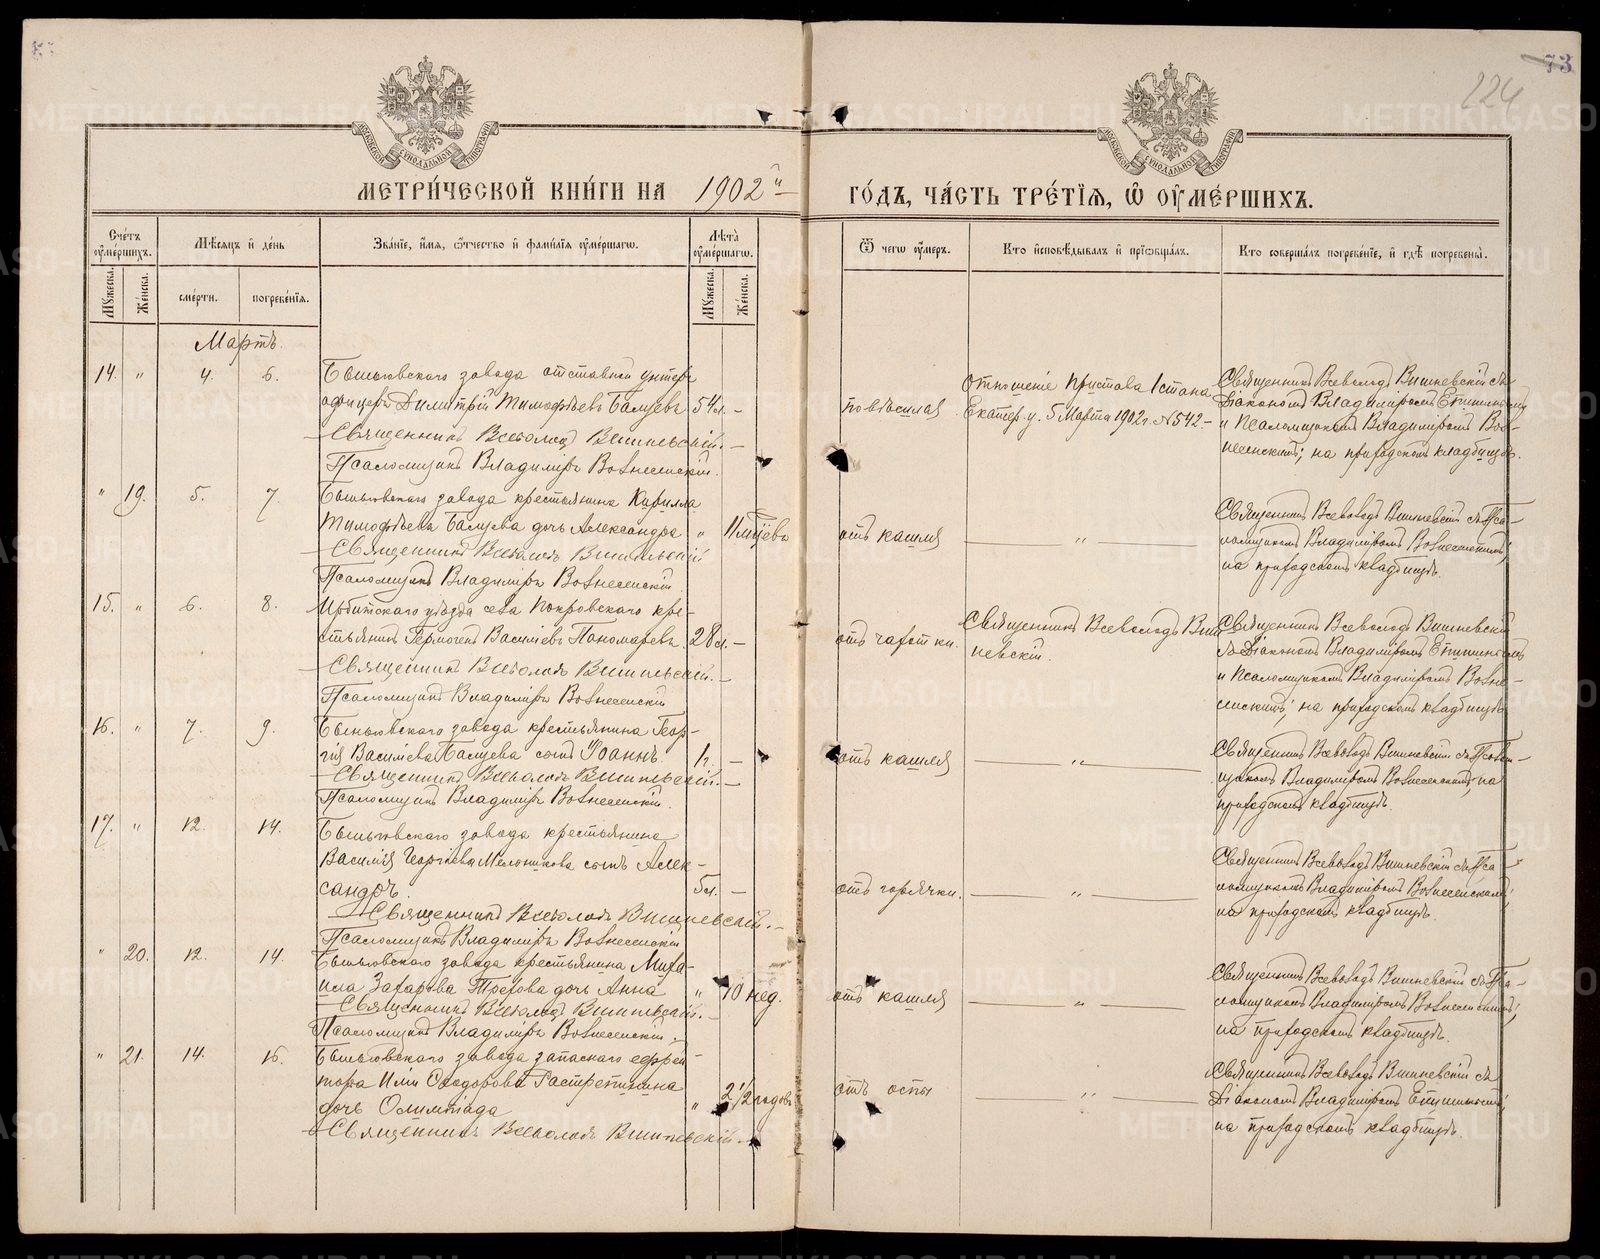 73
224
МОСКОВСКОЙ СѴНОДАЛЬНОЙ ТИПОГРАФІИ
МОСКОВСКОЙ СѴНОДАЛЬНОЙ ТИПОГРАФІИ
МЕТРИ́ЧЕСКОЙ КНИ́ГИ НА 1902й ГО́ДЪ, ЧА́СТЬ ТРЕ́ТІѦ, Ѡ ОУ҆МЕ́РШИХЪ.
Сче́тъ оу҆ме́ршихъ.
Мѣ́сяцъ и҆ де́нь
Зва́ніе, и҆́мя, ѻ҆́тчество и҆ фами́лія оу҆ме́ршагѡ.
Лѣ́та оу҆ме́ршагѡ.
Ѿ чегѡ̀ оу҆́меръ.
Кто̀ и҆сповѣ́дывалъ и҆ прїѡбща́лъ.
Кто̀ соверша́лъ погребе́ніе, и҆ гдѣ̀ погребены̀.
Мꙋ́жеска.
Же́нска.
сме́рти.
погребе́нія.
Мꙋ́жеска.
Же́нска.
Мартъ.
14. " 4. 6. Быньговскаго завода отставной унтеръ
офицеръ Димитрій Тимофѣевъ Балуевъ 54 л. –
Священникъ Всеволодъ Вишневскій. –
Псаломщикъ Владиміръ Вознесенскій.
повѣсился
Отношеніе Пристава 1 стана
Екатер. у. 5 Марта 1902 г. №542. –
Священникъ Всеволодъ Вишневскій съ
Діакономъ Владиміромъ
и Псаломщикомъ Владиміромъ Воз-
несенскимъ; на приходскомъ кладбищѣ.
" 19. 5. 7. Быньговскаго завода крестьянина Кирилла
Тимофѣева Балуева дочь Александра " 11 мѣсяцевъ
Священникъ Всеволодъ Вишневскій
Псаломщикъ Владиміръ Вознесенскій
отъ кашля
"
Священникъ Всеволодъ Вишневскій съ Пса-
ломщикомъ Владиміромъ Вознесенскимъ;
на приходскомъ кладбищѣ.
15. " 6. 8. Ирбитскаго уѣзда села Покровскаго кре-
стьянинъ Гермогенъ Василіевъ Пономаревъ. 28 л. –
Священникъ Всеволодъ Вишневскій. –
Псаломщикъ Владиміръ Вознесенскій
отъ чахотки.
Священникъ Всеволодъ Виш-
невскій.
Священникъ Всеволодъ Вишневскій
съ Діакономъ Владиміромъ
и Псаломщикомъ Владиміромъ Возне-
сенскимъ; на приходскомъ кладбищѣ
16. " 7. 9. Быньговскаго завода крестьянина Геор-
гія Василіева Балуева сынъ Іоаннъ. 1 г. –
Священникъ Всеволодъ Вишневскій. –
Псаломщикъ Владиміръ Вознесенскій.
отъ кашля
"
Священникъ Всеволодъ Вишневскій съ Псалом-
щикомъ Владиміромъ Вознесенскимъ; на
приходскомъ кладбищѣ.
17. " 12. 14. Быньговскаго завода крестьянина
Василія Георгіева Мельникова сынъ Алек-
сандръ. 5 л. –
Священникъ Всеволодъ Вишневскій. –
Псаломщикъ Владиміръ Вознесенскій
отъ горячки.
"
Священникъ Всеволодъ Вишневскій съ Пса-
ломщикомъ Владиміромъ Вознесенскимъ;
на приходскомъ кладбищѣ.
" 20. 12. 14. Быньговскаго завода крестьянина Миха-
ила Захарова Трехова дочь Анна " 10 нед.
Священникъ Всеволодъ Вишневскій. –
Псаломщикъ Владиміръ Вознесенскій.
отъ кашля
"
Священникъ Всеволодъ Вишневскій съ Пса-
ломщикомъ Владиміромъ Вознесенскимъ;
на приходскомъ кладбищѣ.
" 21. 14. 16. Быньговскаго завода запаснаго ефрей-
тора Иліи Ѳеодорова Растрепихина
дочь Олимпіада " 2 1/2 годовъ
Священникъ Всеволодъ Вишневскій. –
отъ оспы
"
Священникъ Всеволодъ Вишневскій съ
Діакономъ Владиміромъ
на приходскомъ кладбищѣ.
METRIKI.GASO-URAL.RU